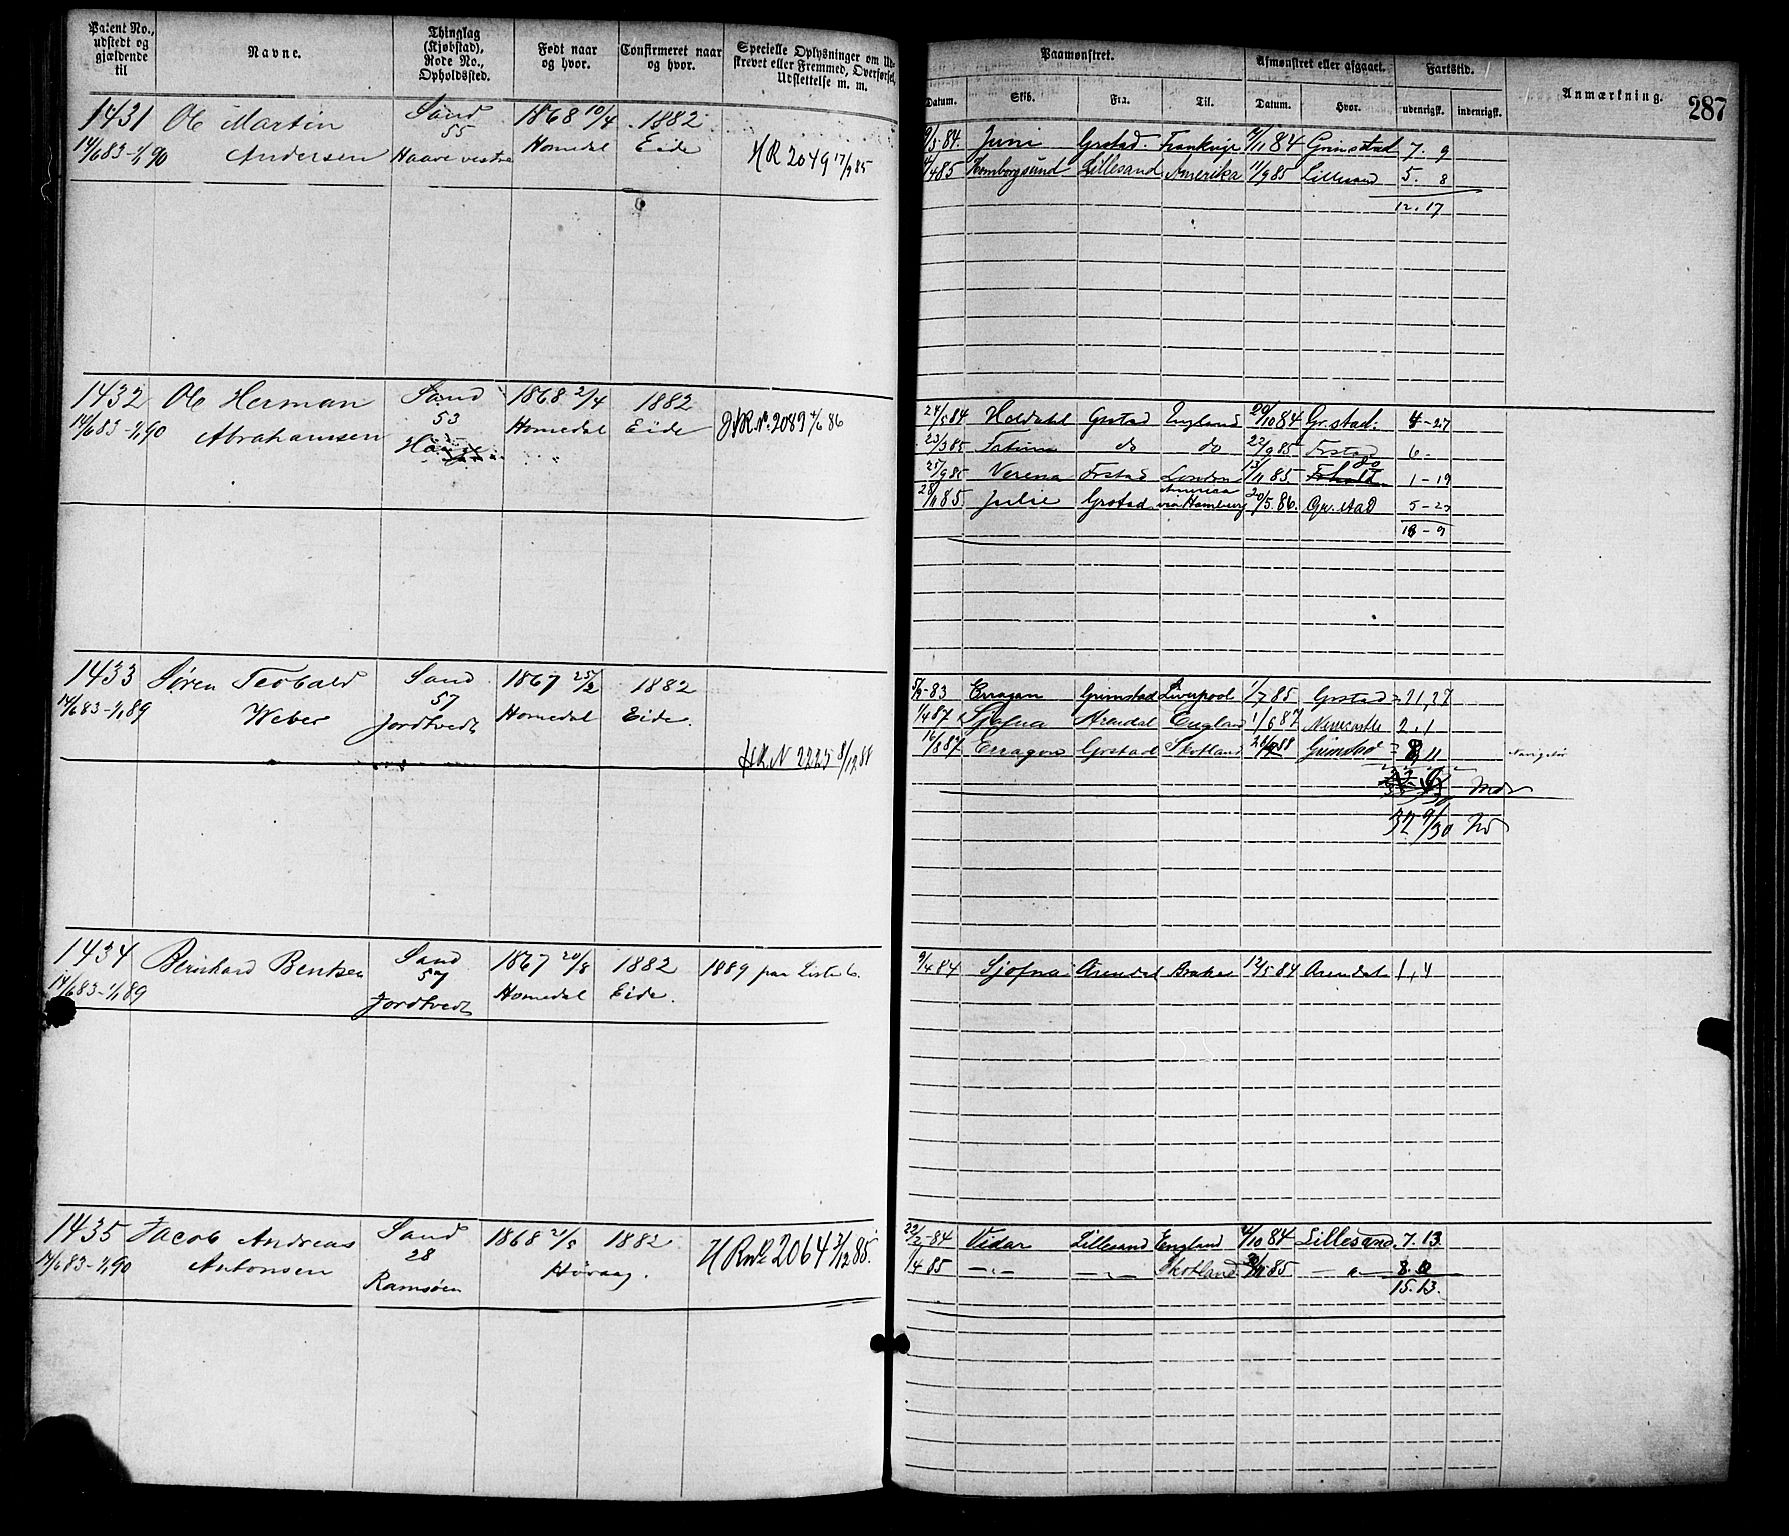 Patent No., udstedt og gjældende til
Navne.
Thinglag (Kjøbstad), Rode No., Opholdssted.
Født naar og hvor.
Confirmeret naar og hvor.
Specielle Oplysninger om Ud-
skrevet eller Fremmed, Overførsel,
Udslettelse m. m.
Paamønstret.
Afmønstret eller afgaaet.
Fartstid.
Anmærkning.
287
Datum. Skib. Fra. Til. Datum. Hvor. udenrigsk. indenrigsk.
1431 Ole Martin Sand 1868 10/4 1882
55
14/6 83-1/1 90 Andersen Haave vestre Homedal Eide HR 2049 17/9 85
9/5 84 Juni Grstad. Frankrige 4/11 84 Grimstad 7. 9
4/4 85 Homborgsund Lillesand Amerika 11/9 85 Lillesand 5. 8
12. 17
1432 Ole Herman Sand 1868 2/4 1882
53
14/6 83-1/1 90 Abrahamsen Homedal Eide HR No. 2083 4/6 86
24/5 84 Holdahl Grstad England 20/10 84 Gr.stad. 4-27
23/3 85 do do 22/9 85 Frstad 6-
25/9 85 Verena Frstad London 13/11 85 do 1-19
America
28/11 85. Julie Grstad via Hamburg 20/5. 86. Gr.stad 5-23
18-9
1433 Søren Teobald Sand 1867 25/2 1882
57
14/6 83-1/1 89 Weber Jordtvedt Homedal Eide.
HR. N 2225 8/12 88
5/9-83 Erragon Grimstad Liverpool 1/7 85 Grstad = 21,27
1/4 87 Sjofna Arendal England 1/6 87 Newcastle 2,1
16/8 87 Erragon Grstad Skotland Grimstad = 8,11
32 9/30
1434 Bernhard Bentsen Sand 1867 20/8 1882 1889 paa Liste 6.
57
14/6 83-1/1 89 Jordtvedt Homedal Eide.
9/4 84 Sjofna Arendal Brake 12/5 84 Arendal 1,4
1435 Jacob Andreas Sand 1868 21/5 1882
28
14/6 83-1/1 90 Antonsen Ramsøen Høvaag. HR No 2064 3/12 85.
22/2-84 Vidar Lillesand England 4/10 84 Lillesand. 7. 13.
1/4 85 -"- -"- Skotland -"- 8. 0
15. 13.